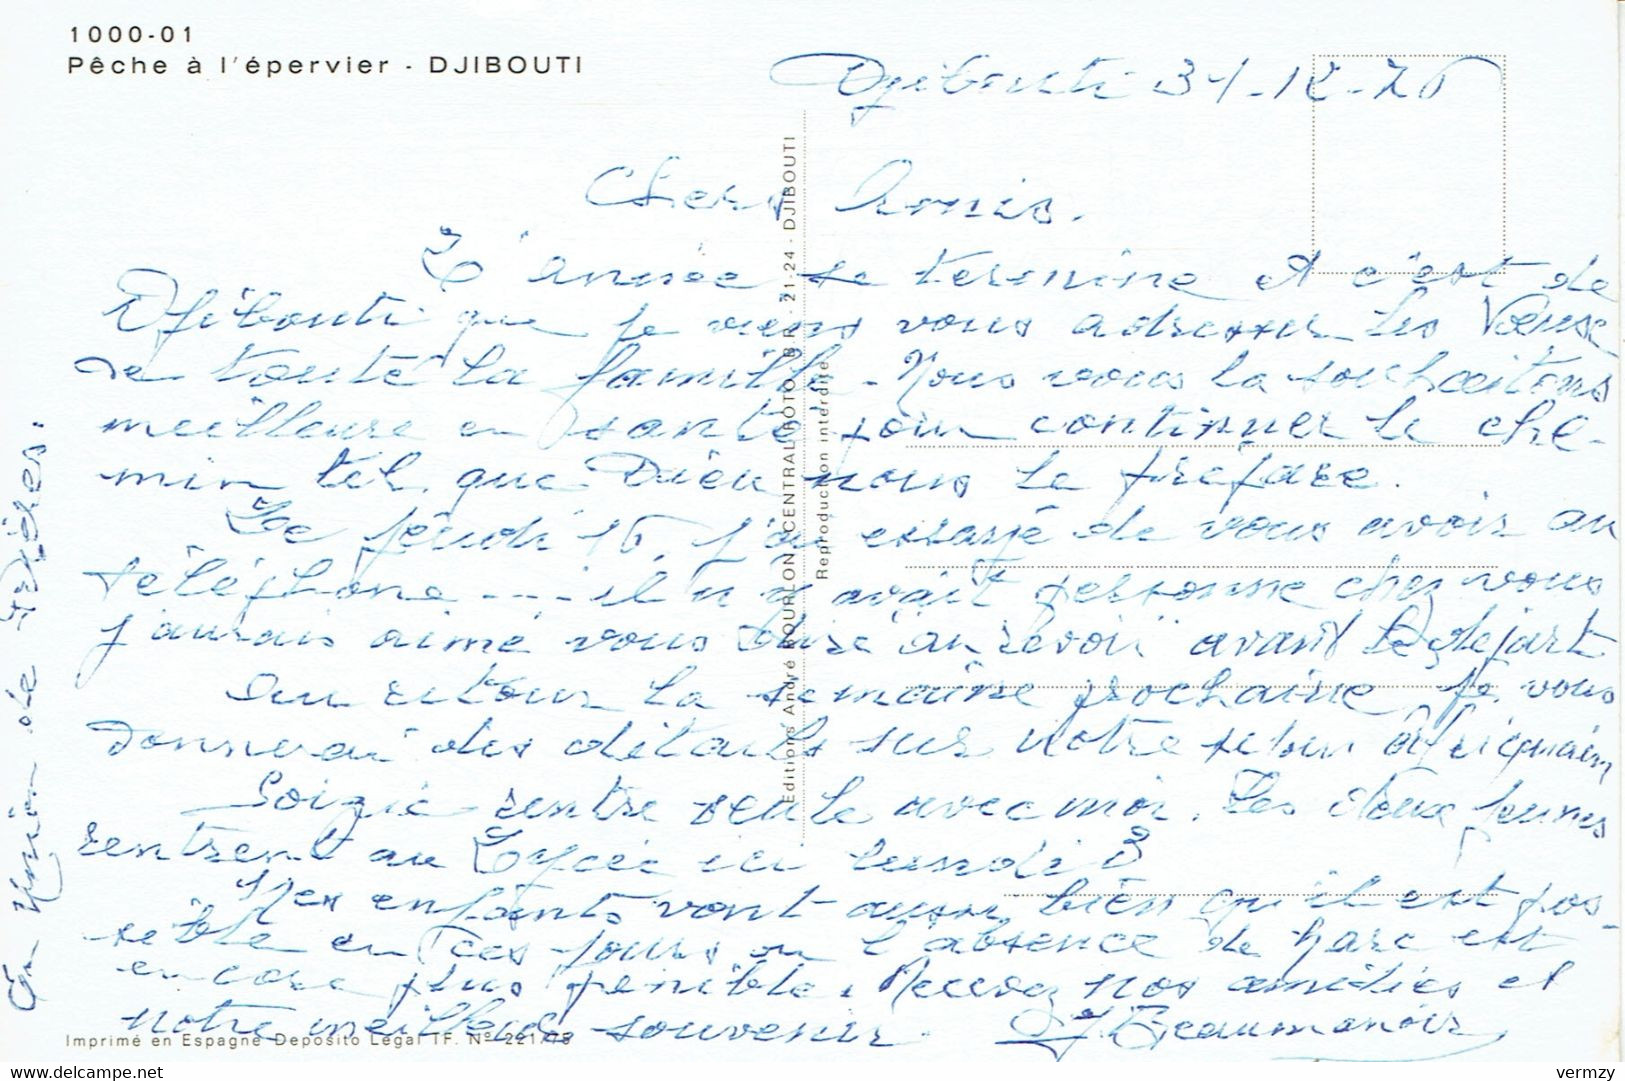 1000-01
Pêche à l'épervier - DJIBOUTI
Djibouti 31-12-76
Chers Amis.
L'année se termine et c'est de
Djibouti que je viens vous adresser les Vœux
de toute la famille. Nous vous la souhaitons
meilleure en santé pour continuer le che-
min tel que Dieu nous le prépare.
Le jeudi 16, j'ai essayé de vous avoir au
téléphone --- il n'y avait personne chez vous
j'aurais aimé vous dire "au revoir" avant le départ
Au retour la semaine prochaine je vous
donnerai des détails sur notre séjour africain
Soizic rentre seule avec moi. Les deux jeunes
rentrent au Lycée ici lundi 3
Mes enfants vont aussi bien qu'il est pos-
sible en ces jours où l'absence de Marc est
encore plus pénible. Recevez nos amitiés et
notre meilleur souvenir. J. Beaumanoir
En Union de Prières.
Editions André BOURLON, CENTRAL PHOTO, B.P. 21-24 - DJIBOUTI
Reproduction interdite
Imprimé en Espagne Deposito Legal TF. Nº 221/75
vermzy